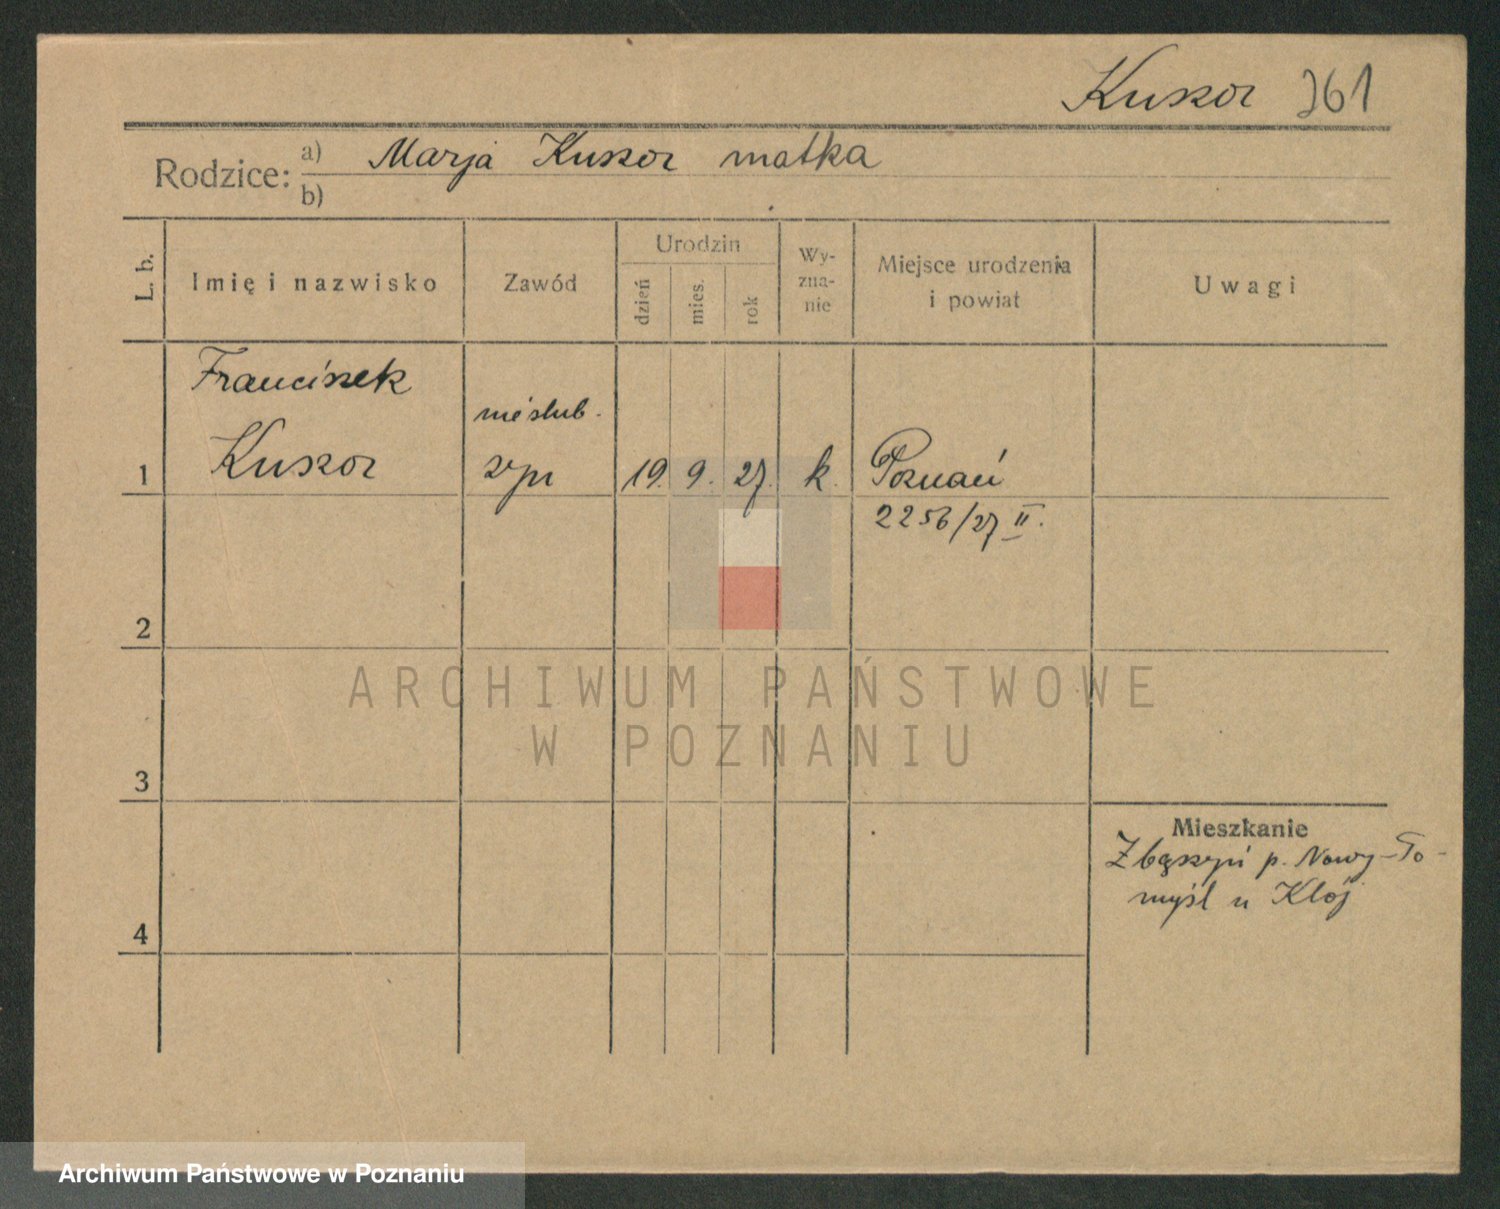 Kuszor 361
Rodzice: a) Marja Kuszor matka
b)
L. b.
Imię i nazwisko
Zawód
Urodzin
dzień
mies.
rok
Wy-
zna-
nie
Miejsce urodzenia
i powiat
Uwagi
Franciszek
nieślub.
1 Kuszor syn 19. 9. 27. k. Poznań
2256/27 II.
2
ARCHIWUM PAŃSTWOWE
W POZNANIU
3
Mieszkanie
Zbąszyń p. Nowy-To-
myśl u Klój
4
Archiwum Państwowe w Poznaniu